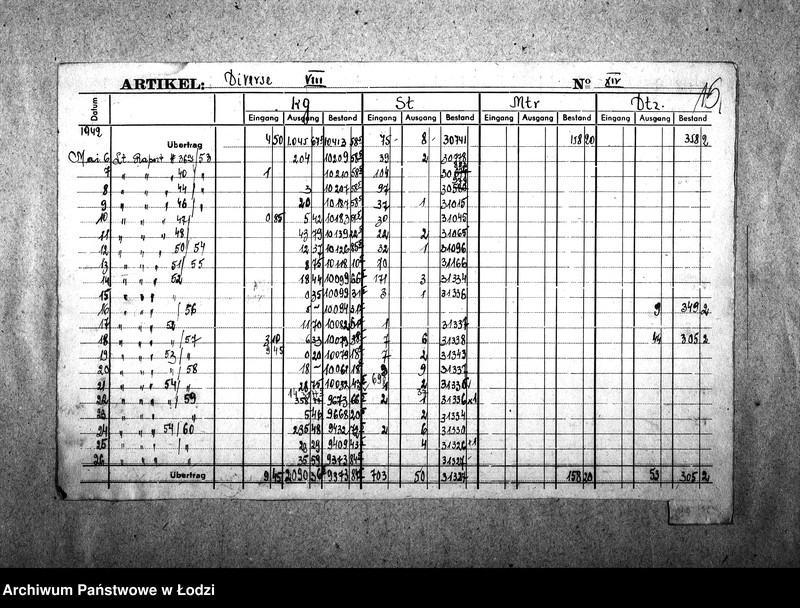 ARTIKEL: Diverse VIII Nº XIV 15,
Datum kg St Mtr Dtz.
Eingang Ausgang Bestand Eingang Ausgang Bestand Eingang Ausgang Bestand Eingang Ausgang Bestand
1942
Übertrag 4 50 1.045 67 10413 58 75 8 30741 158 20 358 2
6 Lt. Raport 53 204 10209 58 39 2
7 " " " 40 / " 1 10210 58 104
8 " " " 44 / " 3 10207 58 97
9 " " " 46 / " 20 10187 58 37 1 31015
10 " " " 47 / 0 85 5 42 10183 30 31045
11 " " " 48 / 43 79 10139 22 22 2 31065
12 " " " 50 / 54 12 37 10126 85 32 1 31096
13 " " " 51 / 55 8 75 10118 10 70 31166
14 " " " 52 18 44 10099 66 171 3 31334
15 " " " 0 35 10099 31 3 1 31336
16 " " " / 56 5 - 10094 31 9 349 2
17 " " " 11 70 10082 1 31337
18 " " " / 57 3 10 6 33 10079 38 7 6 31338 44 305 2
19 " " " 53 / " 0 20 10079 18 7 2 31343
20 " " " / 58 18 - 10061 18 9 31337
21 " " " 54 / " 28 75 10032 43 1 2
22 " " " / 59 358 9673 66 2 1 31336
23 " " " 5 46 9668 20 2 31334
24 " " " 54 / 60 235 48 9432 72 2 6 31330
25 " " " / " 23 29 9409 43 4 31326
26 " " " 35 59 9373 84
Übertrag 9 45 2090 36 9373 84 703 50 31327 158 20 53 305 2
Archiwum Państwowe w Łodzi